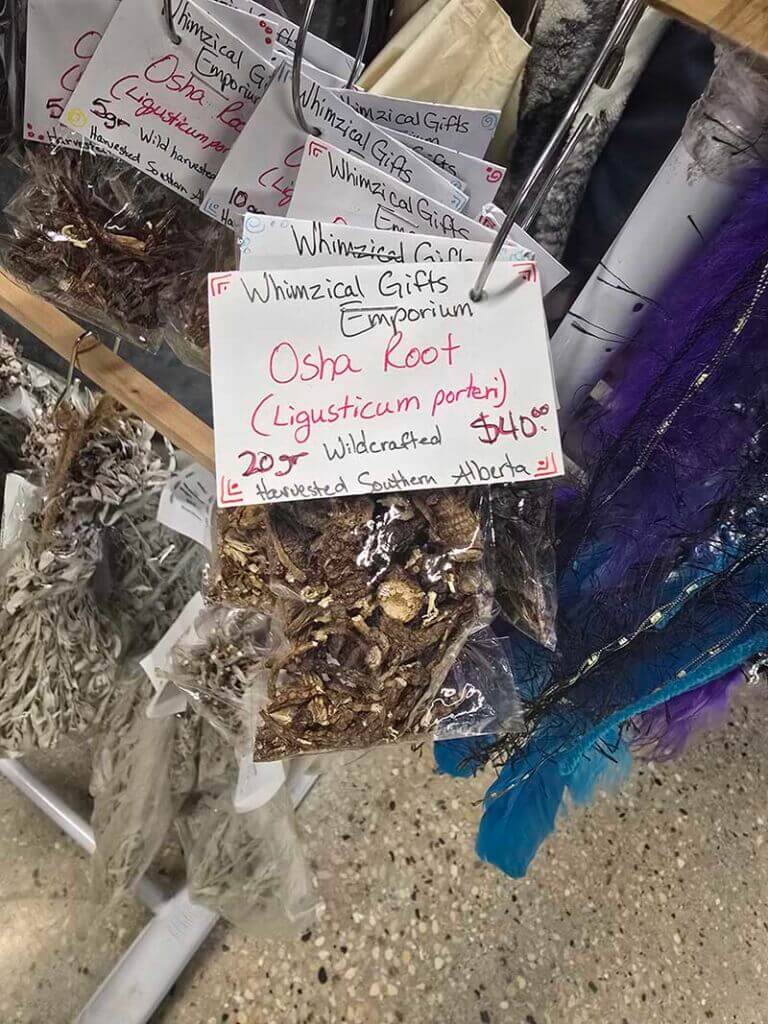 Whimzical Gifts
Emporium
Osha Root
(Ligusticum porteri)
20gr Wildcrafted $40.00
Harvested Southern Alberta
Whimzical Gifts
Whimzical Gifts
Emporium
Whimzical Gifts
10gr
Whimzical Gifts
Whimzical
Emporium
Osha Root
(Ligusticum
5gr Wild harvested
Harvested Southern
5